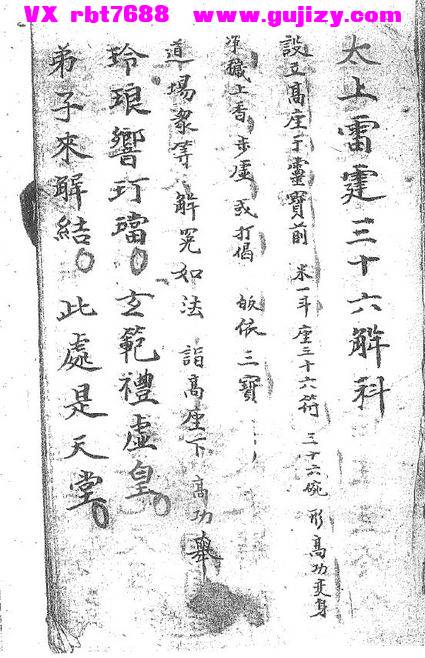 VX rbt7688 www.gujizy.com
太上雷霆三十六解科
設立高座于靈寶前 米一斗 座三十六符 三十六碗 形高功变身
淨穢上香步虛或打偈 皈依三寶
道場眾等 解冤如法 詣高座下 高功舉
玲琅響玎璫 玄範禮虛皇
弟子來解結 此處是天堂